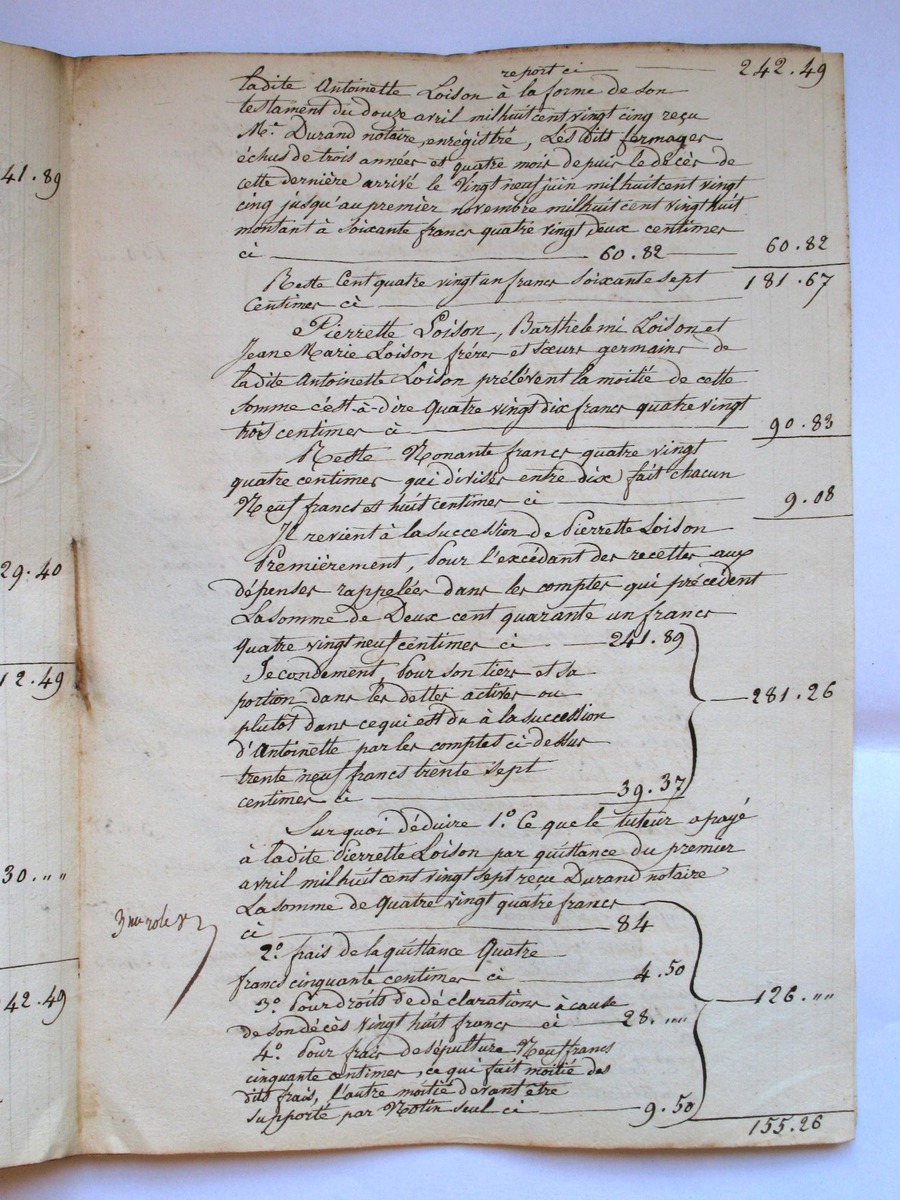 41.89
29.40
12.49
30.""
42.49
report ci 242.49
ladite Antoinette Loison à la forme de son
testament du douze avril mil huit cent vingt cinq reçu
Me. Durand notaire, enrégistré, Lesdits fermages
échus de trois années et quatre mois depuis le décès de
cette dernière arrivé le Vingt neuf juin mil huit cent vingt
cinq jusqu'au premier novembre mil huit cent vingt huit
montant à soixante francs quatre vingt deux centimes
ci 60.82 60.82
Reste Cent quatre vingt un francs Soixante sept 181.67
Centimes ci
Pierrette Loison, Barthelemi Loison et
Jeane Marie Loison fréres et sœurs germains de
ladite Antoinette Loison prélèvent la moitié de cette
somme c'est-à-dire Quatre vingt dix francs quatre vingt
trois centimes ci 90.83
Reste Nonante francs quatre vingt
quatre centimes qui divisés entre dix fait chacun
Neuf francs et huit centimes ci 9.08
Il revient à la succession de Pierrette Loison
Premièrement, Pour l'excédant des recettes aux
dépenses rappelées dans les comptes qui précèdent
La somme de Deux cent quarante un francs
Quatre vingt neuf centimes ci 241.89
Secondement, Pour son tiers et sa
portion dans les dettes actives ou 281.26
plutôt dans ce qui est du à la succession
d'Antoinette par les comptes ci-dessus
trente neuf francs trente sept
centimes ci 39.37
Sur quoi déduire 1.º Ce que le tuteur a payé
à ladite Pierrette Loison par quittance du premier
avril mil huit cent vingt sept reçu Durand notaire
La somme de Quatre vingt quatre francs
3me role
ci 84
2.º frais de la quittance Quatre
francs cinquante centimes ci 4.50
3.º Pour droits de déclarations à cause 126.""
de son décès Vingt huit francs ci 28.""
4.º Pour frais de sépulture Neuf francs
cinquante centimes, ce qui fait moitié des
dits frais, l'autre moitié devant etre
supporté par Notin seul ci 9.50
155.26